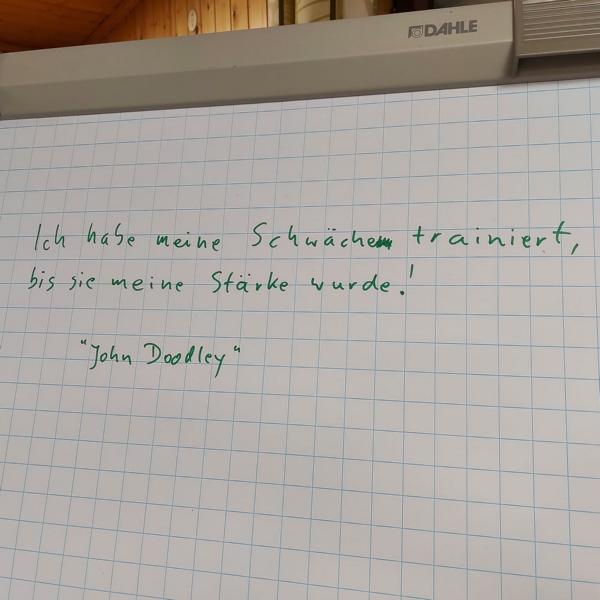 DAHLE
Ich habe meine Schwäche trainiert,
bis sie meine Stärke wurde!
"John Doodley"